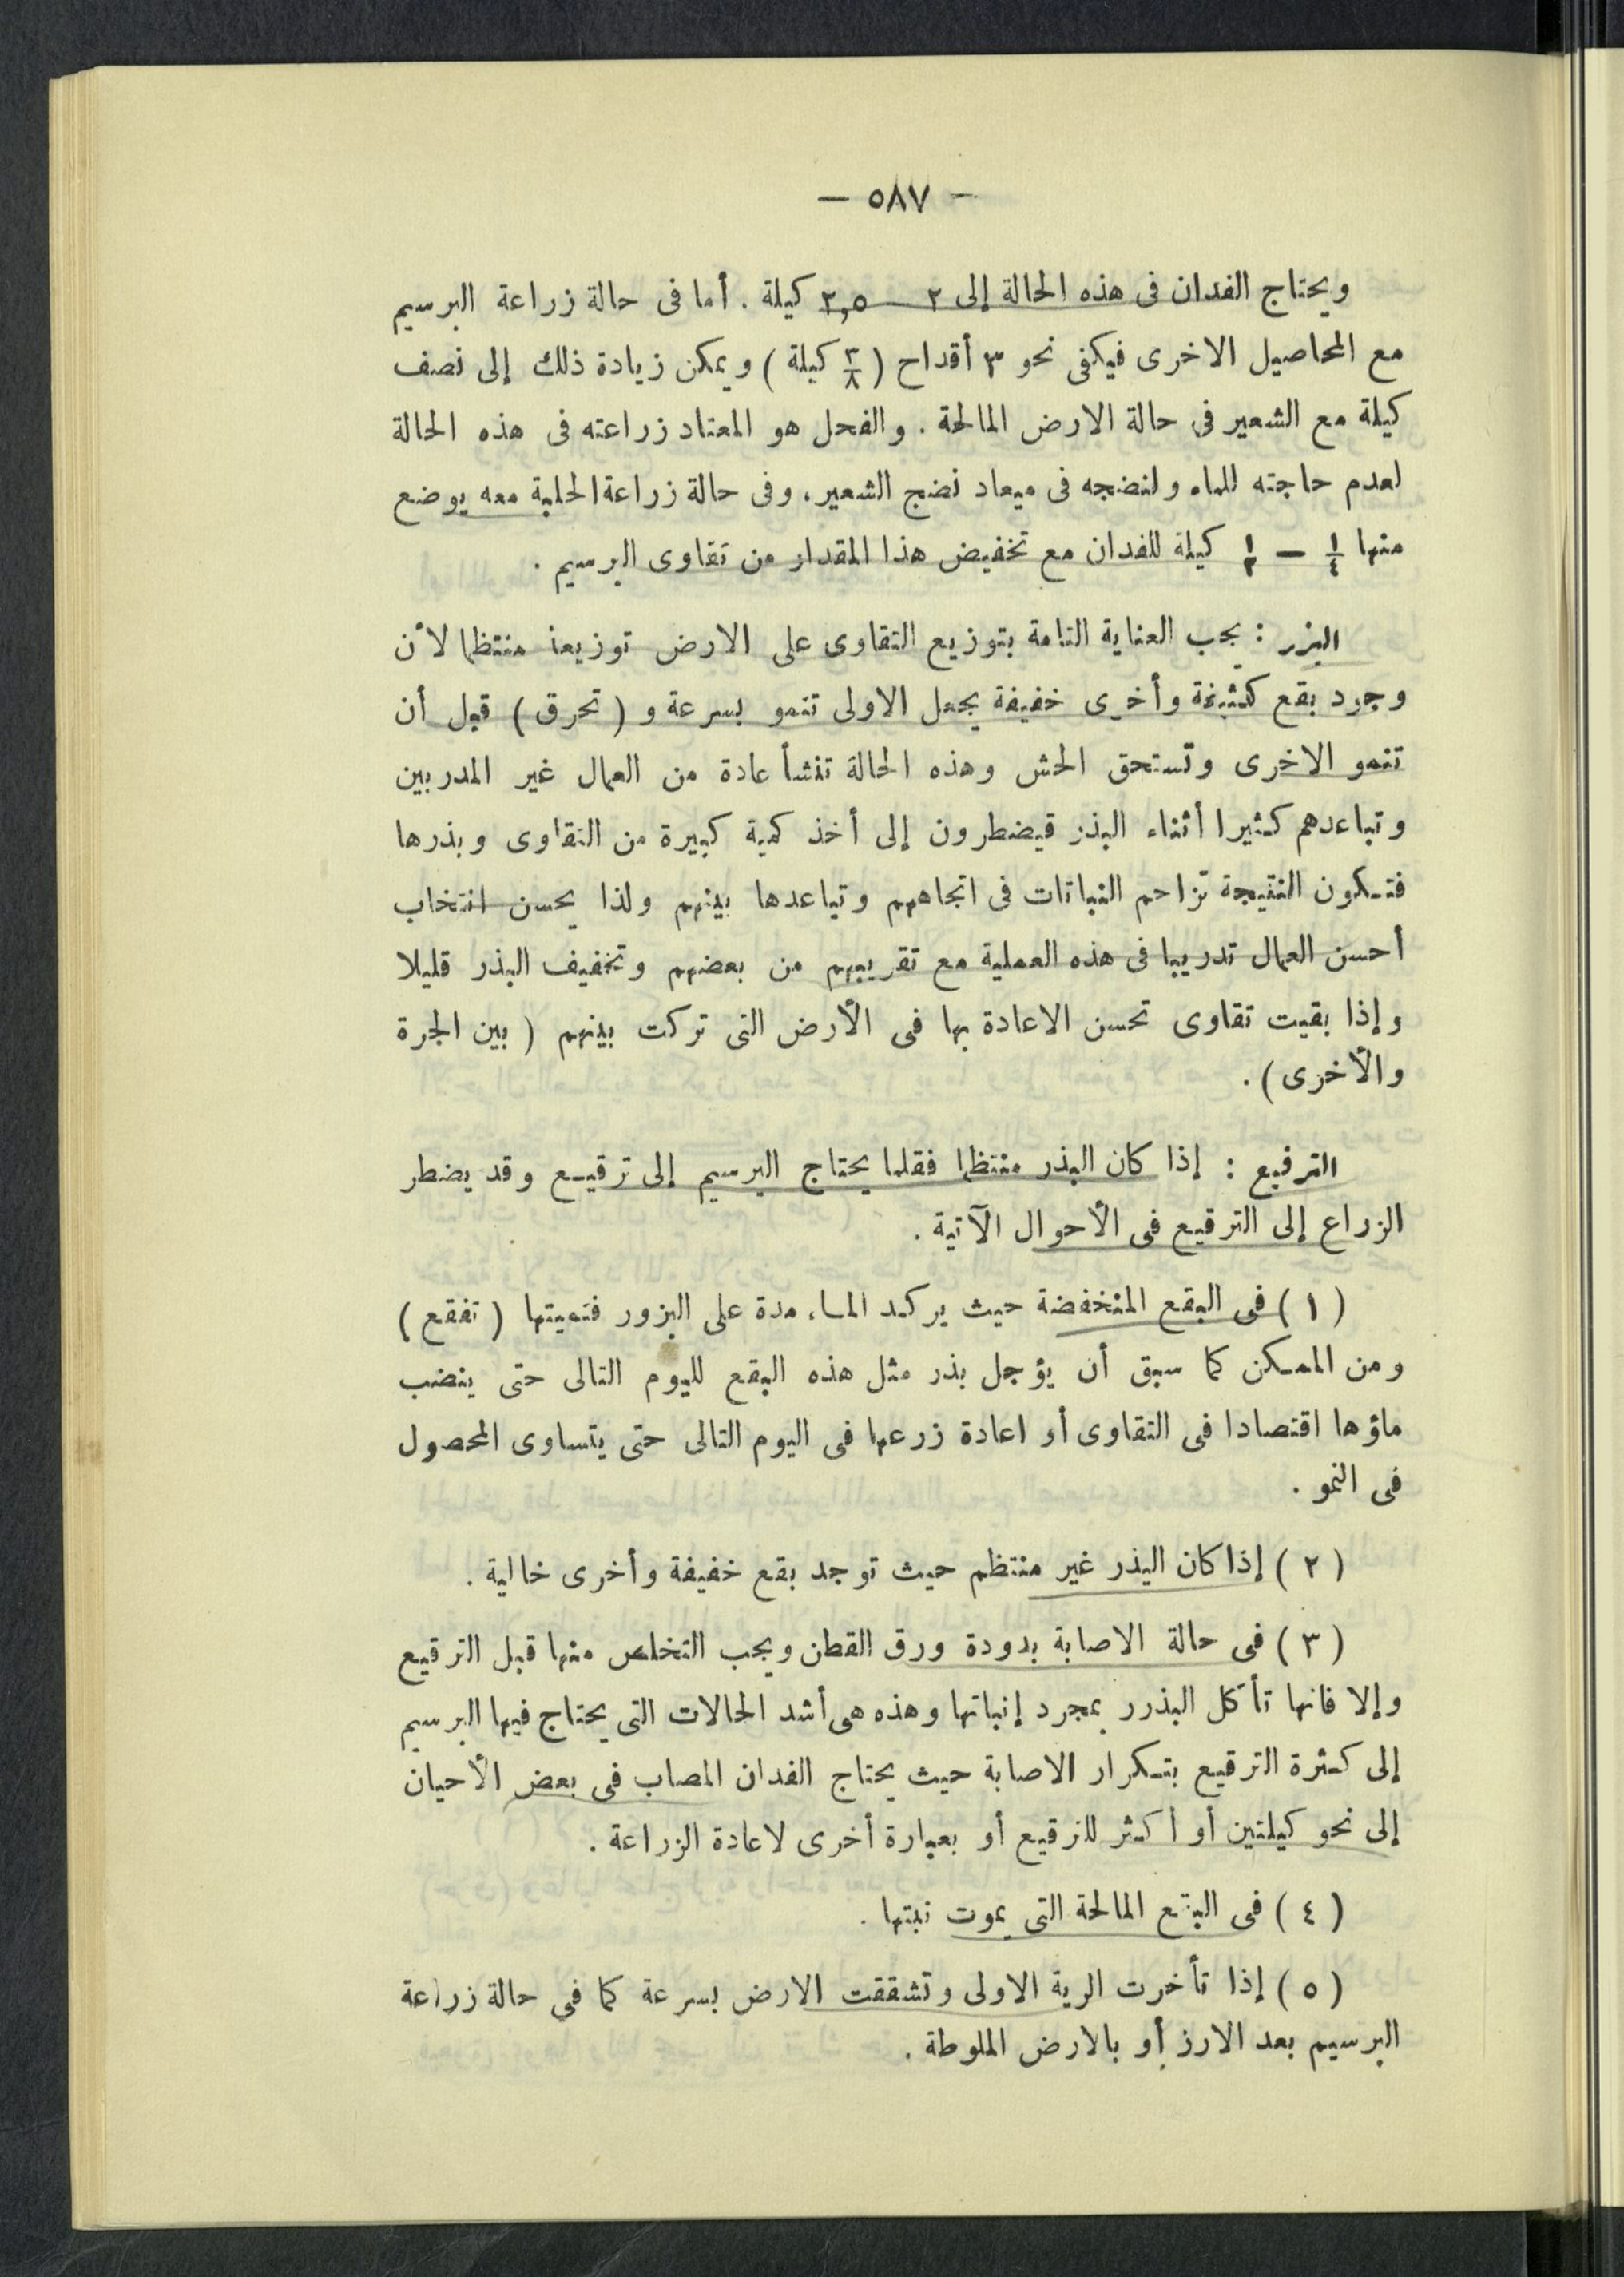 — ٥٨٧ —
ويحتاج الفدان فى هذه الحالة إلى ٢ — ٢,٥ كيلة . أما فى حالة زراعة البرسيم
مع المحاصيل الاخرى فيكفى نحو ٣ أقداح ( ٣/٨ كيلة ) ويمكن زيادة ذلك إلى نصف
كيلة مع الشعير فى حالة الارض المالحة . والفحل هو المعتاد زراعته فى هذه الحالة
لعدم حاجته للماء ولنضجه فى ميعاد نضج الشعير، وفى حالة زراعة الحلبة معه يوضع
منها ١/٤ — ١/٢ كيلة للفدان مع تخفيض هذا المقدار من تقاوى البرسيم .
البزر : يجب العناية التامة بتوزيع التقاوى على الارض توزيعا منتظما لأن
وجود بقع كثيفة وأخرى خفيفة يجعل الاولى تنمو بسرعة و ( تحرق ) قبل أن
تنمو الاخرى وتستحق الحش وهذه الحالة تنشأ عادة من العمال غير المدربين
وتباعدهم كثيرا أثناء البذر فيضطرون إلى أخذ كمية كبيرة من التقاوى وبذرها
فتكون النتيجة تزاحم النباتات فى اتجاههم وتباعدها بينهم ولذا يحسن انتخاب
أحسن العمال تدريبا فى هذه العملية مع تقريبهم من بعضهم وتخفيف البذر قليلا
وإذا بقيت تقاوى تحسن الاعادة بها فى الأرض التى تركت بينهم ( بين الجرة
والأخرى ) .
الترقيع : إذا كان البذر منتظما فقلما يحتاج البرسيم إلى ترقيع وقد يضطر
الزراع إلى الترقيع فى الأحوال الآتية .
( ١ ) فى البقع المنخفضة حيث يركد الماء مدة على البزور فتميتها ( تفقع )
ومن الممكن كما سبق أن يؤجل بذر مثل هذه البقع لليوم التالى حتى ينضب
ماؤها اقتصادا فى التقاوى أو اعادة زرعها فى اليوم التالى حتى يتساوى المحصول
فى النمو .
( ٢ ) إذا كان البذر غير منتظم حيث توجد بقع خفيفة وأخرى خالية .
( ٣ ) فى حالة الاصابة بدودة ورق القطن ويجب التخلص منها قبل الترقيع
وإلا فانها تأكل البذرر بمجرد إنباتها وهذه هى أشد الحالات التى يحتاج فيها البرسيم
إلى كثرة الترقيع بتكرار الاصابة حيث يحتاج الفدان المصاب فى بعض الأحيان
إلى نحو كيلتين أو أكثر للترقيع أو بعبارة أخرى لاعادة الزراعة .
( ٤ ) فى البقع المالحة التى يموت نبتها .
( ٥ ) إذا تأخرت الرية الاولى وتشققت الارض بسرعة كما فى حالة زراعة
البرسيم بعد الارز أو بالارض الملوطة .